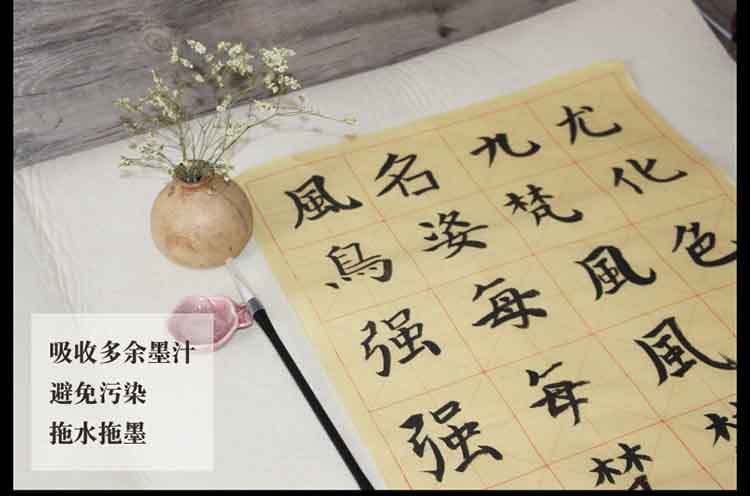 風名九尤
鳥姿梵化
强每風色
强每風
吸收多余墨汁
避免污染
拖水拖墨